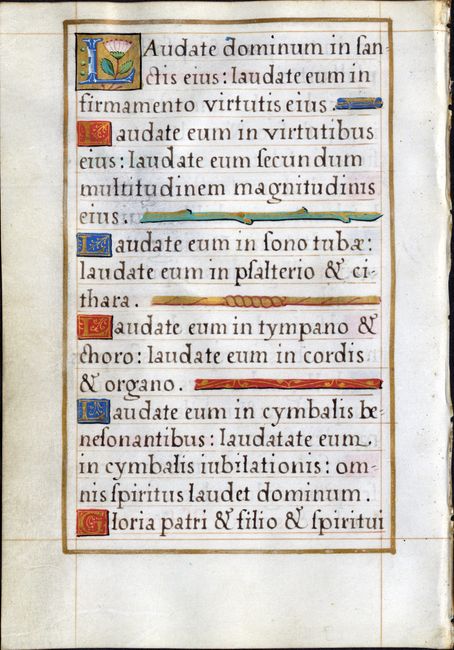 LAudate dominum in san-
ctis eius: laudate eum in
firmamento virtutis eius.
Laudate eum in virtutibus
eius: laudate eum secundum
multitudinem magnitudinis
eius.
Laudate eum in sono tubæ:
laudate eum in psalterio & ci-
thara.
Laudate eum in tympano &
choro: laudate eum in cordis
& organo.
Laudate eum in cymbalis be-
nesonantibus: laudatate eum.
in cymbalis iubilationis: om-
nis spiritus laudet dominum.
Gloria patri & filio & spiritui